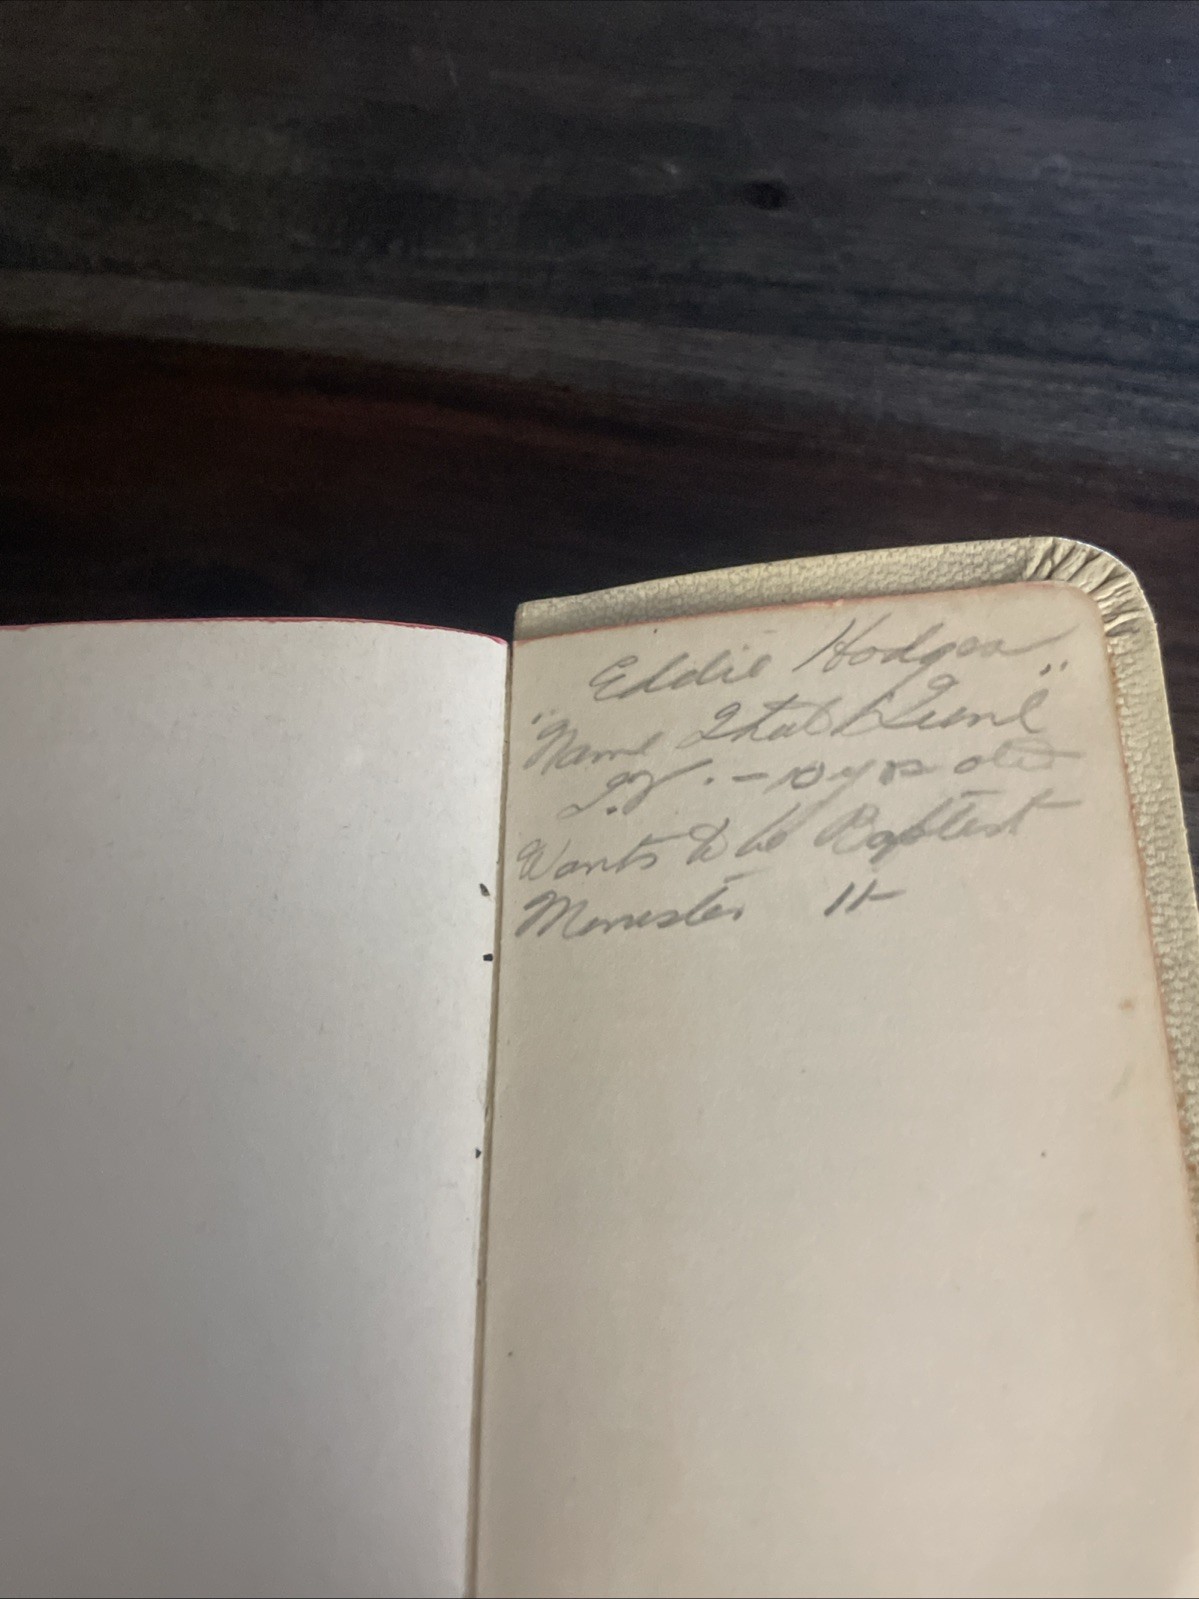 Eddie Hodges
"Name That Tune"
T.V. - 10 yrs old
Wants to be Baptist
Minister